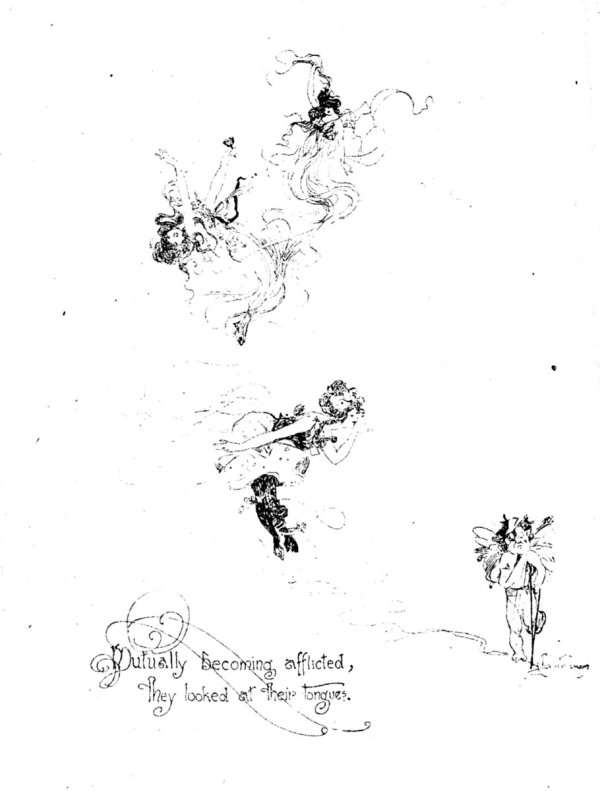 Mutually becoming afflicted,
They looked at their tongues.